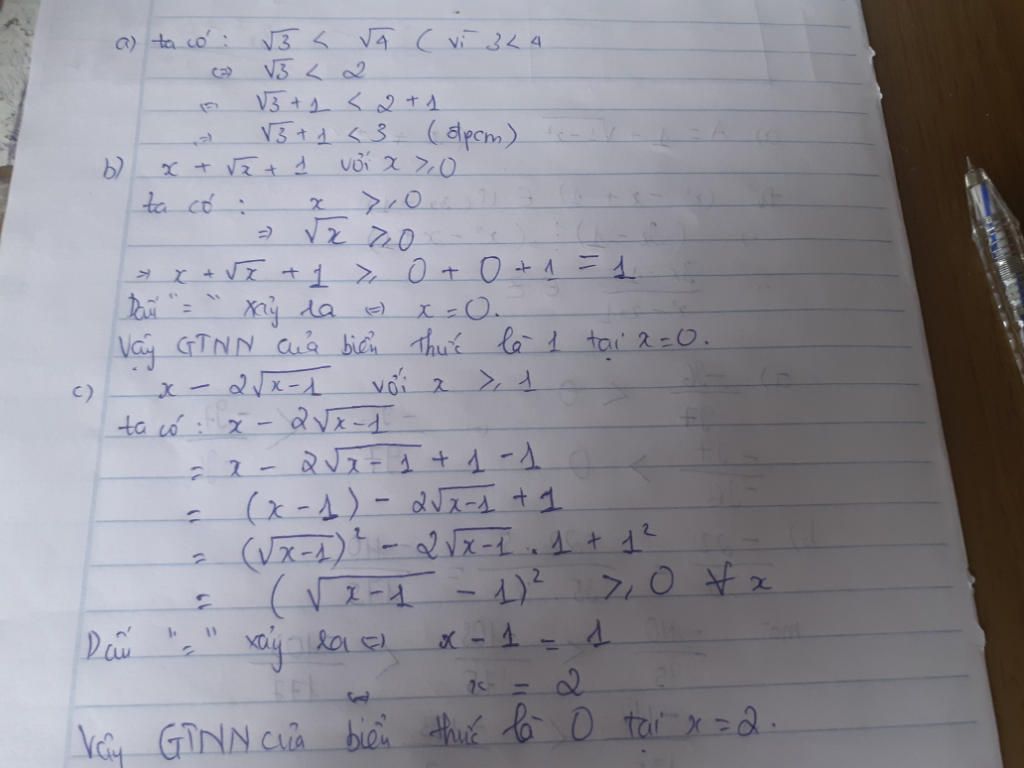 a) ta có : √3 < √4 ( vì 3 < 4
⇔ √3 < 2
⇔ √3 + 1 < 2 + 1
⇒ √3 + 1 < 3 (đpcm)
b) x + √x + 1 với x ≥ 0
ta có : x ≥ 0
⇒ √x ≥ 0
⇒ x + √x + 1 ≥ 0 + 0 + 1 = 1
Dấu "=" xảy ra ⇔ x = 0.
Vậy GTNN của biển thức là 1 tại x = 0.
c) x - 2√(x-1) với x ≥ 1
ta có : x - 2√(x-1)
= x - 2√(x-1) + 1 - 1
= (x - 1) - 2√(x-1) + 1
= (√(x-1))² - 2√(x-1) . 1 + 1²
= (√(x-1) - 1)² ≥ 0 ∀ x
Dấu "=" xảy ra ⇔ x - 1 = 1
⇔ x = 2
Vậy GTNN của biển thức là 0 tại x = 2.